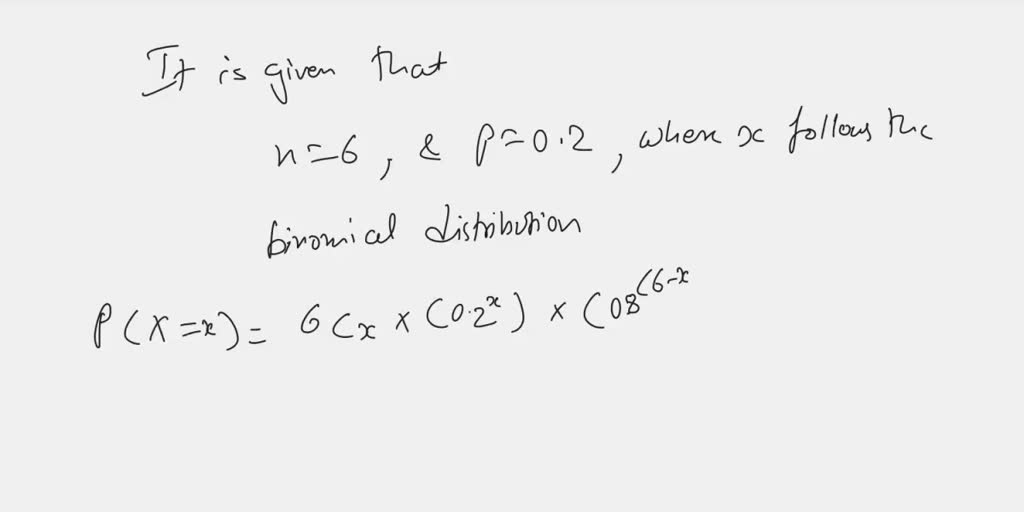 It is given that
n=6, & p=0.2, where x follows the
binomial distribution
P(X=x)= 6Cx × (0.2^x) × (08^(6-x